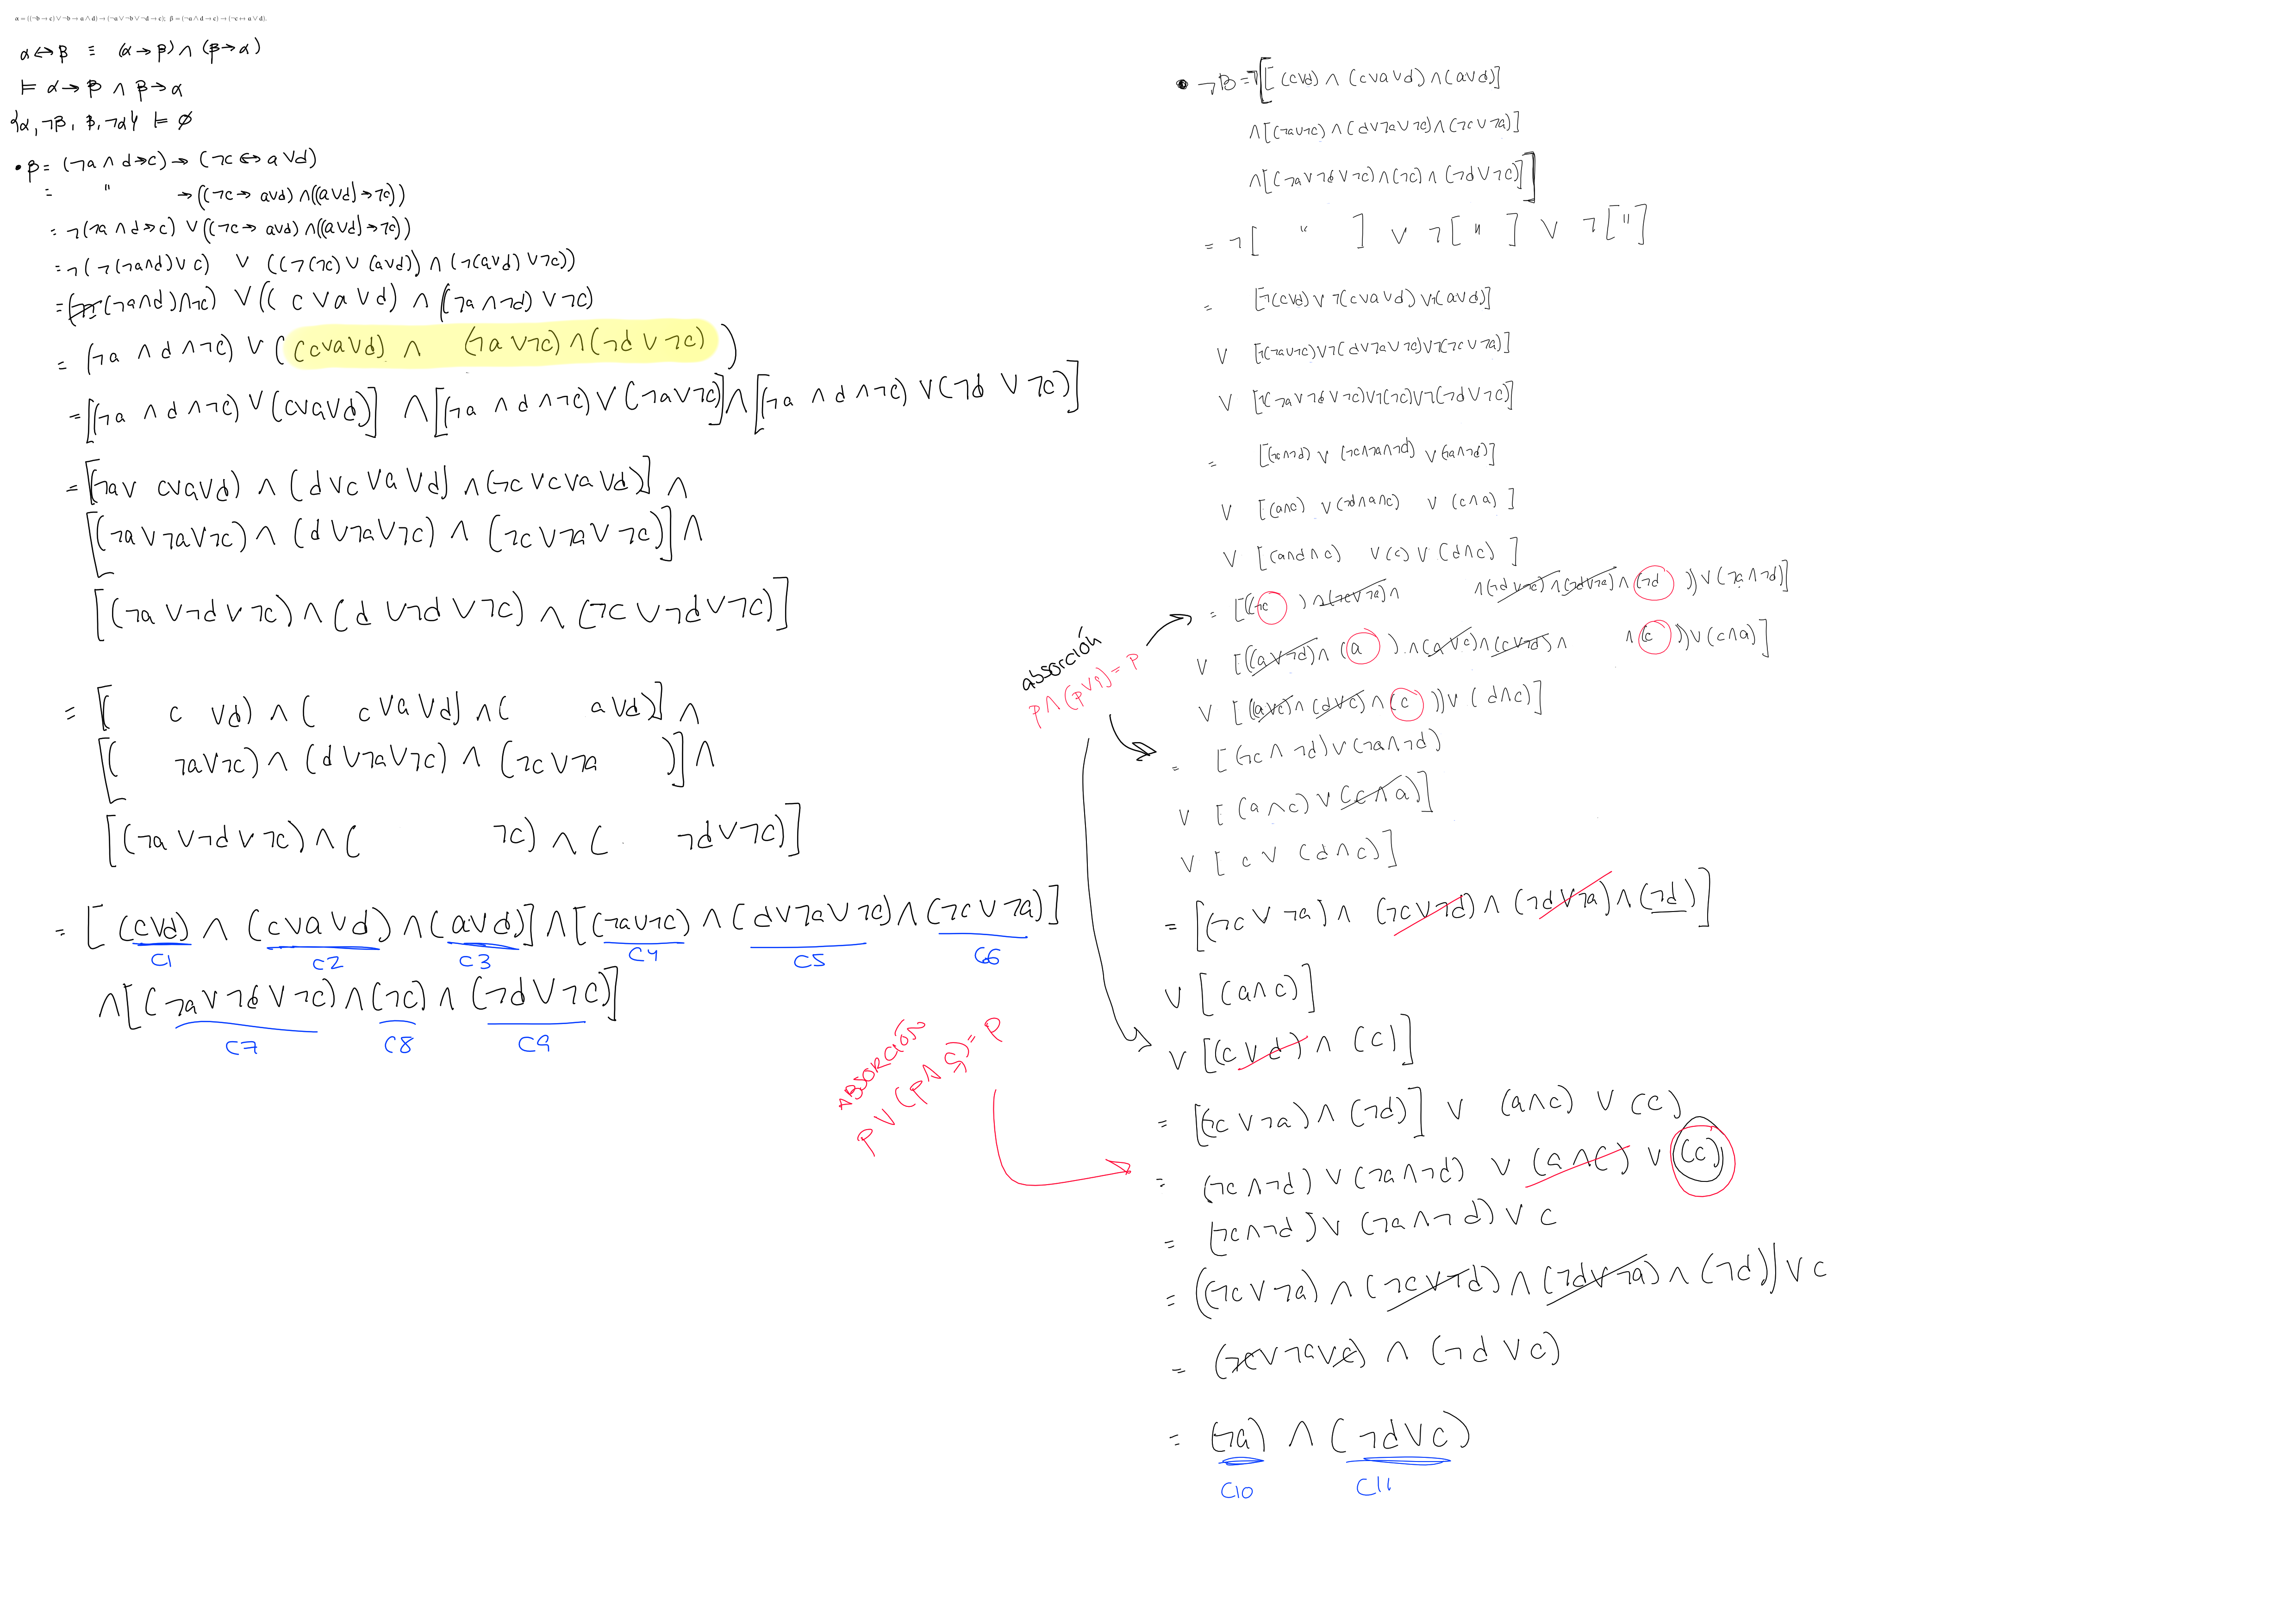 α = ((¬b → c) ∨ ¬b → a ∧ d) → (¬a ∨ ¬b ∨ ¬d → c); β = (¬a ∧ d → c) → (¬c ↔ a ∨ d).
α ↔ β ≡ (α → β) ∧ (β → α)
⊨ α → β ∧ β → α
{α, ¬β, β, ¬α} ⊨ ∅
• β = (¬a ∧ d → c) → (¬c ↔ a ∨ d)
= " → ((¬c → a∨d) ∧ ((a∨d) → ¬c))
= ¬(¬a ∧ d → c) ∨ ((¬c → a∨d) ∧ ((a∨d) → ¬c))
= ¬(¬(¬a∧d) ∨ c) ∨ ((¬(¬c) ∨ (a∨d)) ∧ (¬(a∨d) ∨ ¬c))
= ((¬a∧d) ∧ ¬c) ∨ ((c ∨ a ∨ d) ∧ ((¬a ∧ ¬d) ∨ ¬c)
= (¬a ∧ d ∧ ¬c) ∨ ((c∨a∨d) ∧ (¬a ∨ ¬c) ∧ (¬d ∨ ¬c))
= [(¬a ∧ d ∧ ¬c) ∨ (c∨a∨d)] ∧ [(¬a ∧ d ∧ ¬c) ∨ (¬a∨¬c)] ∧ [(¬a ∧ d ∧ ¬c) ∨ (¬d ∨ ¬c)]
= [(¬a ∨ c∨a∨d) ∧ (d∨c∨a∨d) ∧ (¬c∨c∨a∨d)] ∧
[(¬a∨¬a∨¬c) ∧ (d∨¬a∨¬c) ∧ (¬c∨¬a∨¬c)] ∧
[(¬a∨¬d∨¬c) ∧ (d∨¬d∨¬c) ∧ (¬c∨¬d∨¬c)]
= [( c ∨d) ∧ ( c∨a∨d) ∧ ( a∨d)] ∧
[( ¬a∨¬c) ∧ (d∨¬a∨¬c) ∧ (¬c∨¬a )] ∧
[(¬a∨¬d∨¬c) ∧ ( ¬c) ∧ ( ¬d∨¬c)]
= [(c∨d) ∧ (c∨a∨d) ∧ (a∨d)] ∧ [(¬a∨¬c) ∧ (d∨¬a∨¬c) ∧ (¬c∨¬a)]
C1 C2 C3 C4 C5 C6
∧ [(¬a∨¬d∨¬c) ∧ (¬c) ∧ (¬d∨¬c)]
C7 C8 C9
• ¬β = ¬[[(c∨d) ∧ (c∨a∨d) ∧ (a∨d)]
∧ [(¬a∨¬c) ∧ (d∨¬a∨¬c) ∧ (¬c∨¬a)]
∧ [(¬a∨¬d∨¬c) ∧ (¬c) ∧ (¬d∨¬c)]]
= ¬[ " ] ∨ ¬[ " ] ∨ ¬["]
= [¬(c∨d) ∨ ¬(c∨a∨d) ∨ ¬(a∨d)]
∨ [¬(¬a∨¬c) ∨ ¬(d∨¬a∨¬c) ∨ ¬(¬c∨¬a)]
∨ [¬(¬a∨¬d∨¬c) ∨ ¬(¬c) ∨ ¬(¬d∨¬c)]
= [(¬c∧¬d) ∨ (¬c∧¬a∧¬d) ∨ (¬a∧¬d)]
∨ [(a∧c) ∨ (¬d∧a∧c) ∨ (c∧a)]
∨ [(a∧d∧c) ∨ (c) ∨ (d∧c)]
= [((¬c) ∧ (¬c∨¬a) ∧ ∧ (¬d∨¬c) ∧ (¬d∨¬a) ∧ (¬d)) ∨ (¬a∧¬d)]
∨ [((a∨¬d) ∧ (a) ∧ (a∨c) ∧ (c∨¬d) ∧ ∧ (c)) ∨ (c∧a)]
∨ [((a∨c) ∧ (d∨c) ∧ (c)) ∨ (d∧c)]
absorción
p ∧ (p∨q) = p
= [(¬c ∧ ¬d) ∨ (¬a∧¬d)
∨ [(a∧c) ∨ (c∧a)]
∨ [c ∨ (d∧c)]
= [(¬c ∨ ¬a) ∧ (¬c∨¬d) ∧ (¬d∨¬a) ∧ (¬d)]
∨ [(a∧c)]
∨ [(c∨d) ∧ (c)]
ABSORCIÓN
p ∨ (p ∧ q) = p
= [(¬c ∨ ¬a) ∧ (¬d)] ∨ (a∧c) ∨ (c)
= (¬c∧¬d) ∨ (¬a∧¬d) ∨ (a∧c) ∨ (c)
= (¬c∧¬d) ∨ (¬a∧¬d) ∨ c
= ((¬c∨¬a) ∧ (¬c∨¬d) ∧ (¬d∨¬a) ∧ (¬d)) ∨ c
= (¬c∨¬a∨c) ∧ (¬d∨c)
= (¬a) ∧ (¬d∨c)
C10 C11